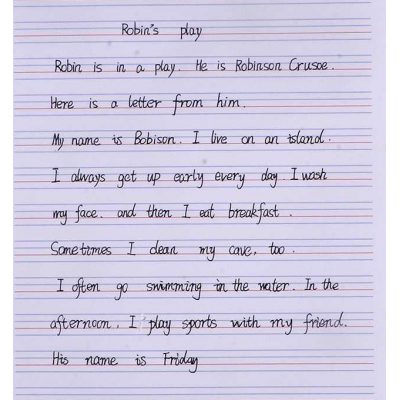 Robin's play
Robin is in a play. He is Robinson Crusoe.
Here is a letter from him.
My name is Bobison. I live on an island.
I always get up early every day. I wash
my face. and then I eat breakfast.
Sometimes I clean my cave, too.
I often go swimming in the water. In the
afternoon. I play sports with my friend.
His name is Friday